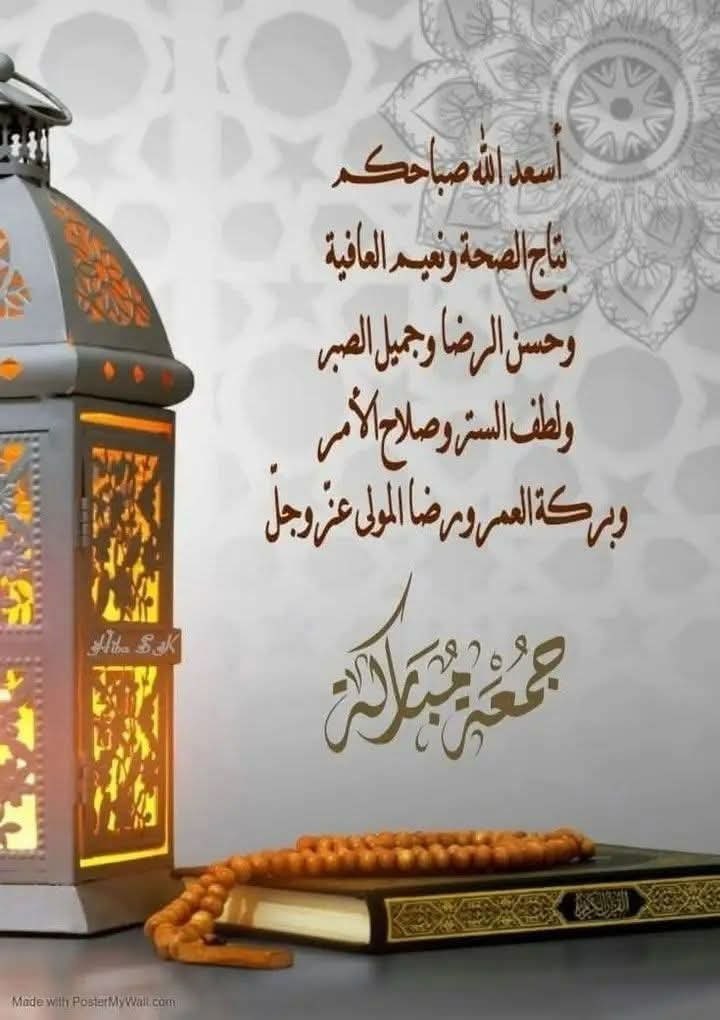 أسعد الله صباحكم
بتاج الصحة ونعيم العافية
وحسن الرضا وجميل الصبر
ولطف الستر وصلاح الأمر
وبركة العمر ورضا المولى عزّ وجلّ
Hiba S K
جُمُعَةْ مُبَارَكَة
القرآن الكريم
Made with PosterMyWall.com